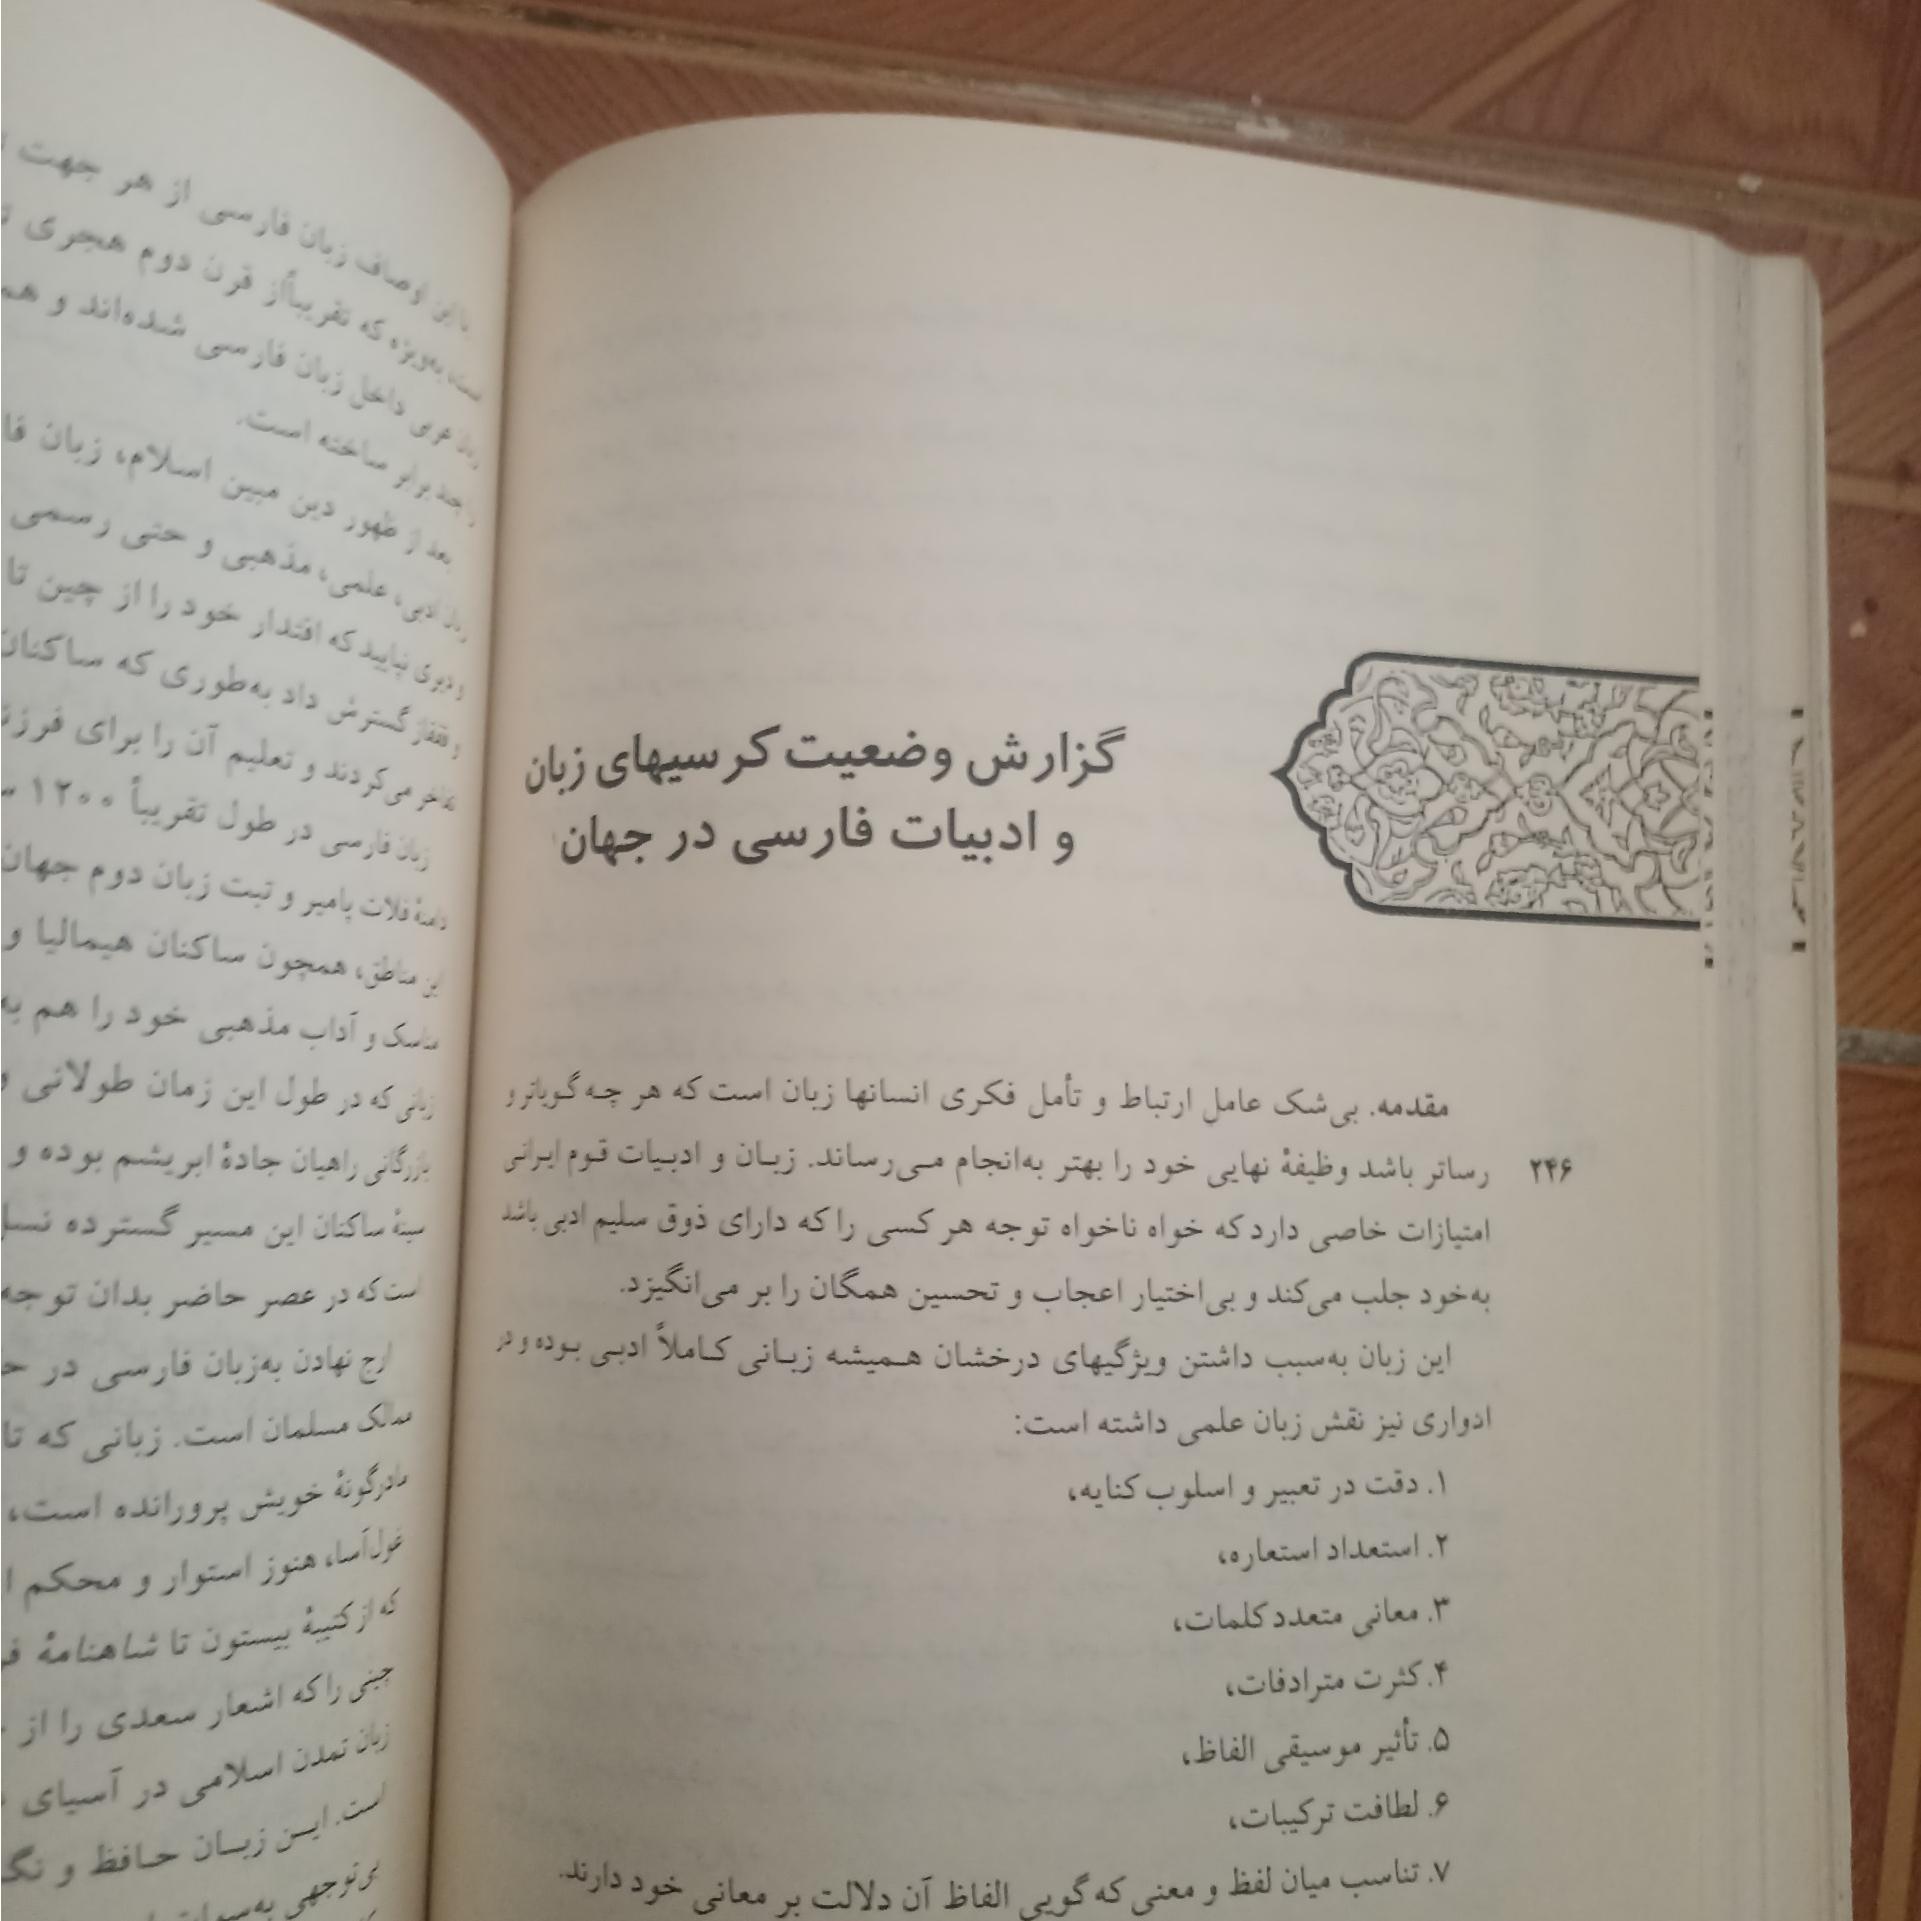 گزارش وضعیت کرسیهای زبان
و ادبیات فارسی در جهان
مقدمه. بی‌شک عامل ارتباط و تأمل فکری انسانها زبان است که هر چه گویاتر و
رساتر باشد وظیفهٔ نهایی خود را بهتر به‌انجام می‌رساند. زبان و ادبیات قوم ایرانی
۲۴۶
امتیازات خاصی دارد که خواه ناخواه توجه هر کسی را که دارای ذوق سلیم ادبی باشد
به‌خود جلب می‌کند و بی‌اختیار اعجاب و تحسین همگان را بر می‌انگیزد.
این زبان به‌سبب داشتن ویژگیهای درخشان همیشه زبانی کاملاً ادبی بوده و در
ادواری نیز نقش زبان علمی داشته است:
۱. دقت در تعبیر و اسلوب کنایه،
۲. استعداد استعاره،
۳. معانی متعدد کلمات،
۴. کثرت مترادفات،
۵. تأثیر موسیقی الفاظ،
۶. لطافت ترکیبات،
۷. تناسب میان لفظ و معنی که گویی الفاظ آن دلالت بر معانی خود دارند.
با این اوصاف زبان فارسی از هر جهت
است، به‌ویژه که تقریباً از قرن دوم هجری
زبان عربی داخل زبان فارسی شده‌اند و
را چند برابر ساخته است.
بعد از ظهور دین مبین اسلام، زبان
زبان ادبی، علمی، مذهبی و حتی رسمی
و دیری نپایید که اقتدار خود را از چین تا
و قفقاز گسترش داد به‌طوری که ساکنان
تفاخر می‌کردند و تعلیم آن را برای
زبان فارسی در طول تقریباً ۱۲۰۰
دامنهٔ فلات پامیر و تبت زبان دوم جهان
این مناطق، همچون ساکنان هیمالیا و
مناسک و آداب مذهبی خود را هم به
زبانی که در طول این زمان طولانی و
بازرگانی راهیان جادهٔ ابریشم بوده و
سینهٔ ساکنان این مسیر گسترده نسل
است که در عصر حاضر بدان توجه
ارج نهادن به‌زبان فارسی در
ممالک مسلمان است. زبانی که تا
مادرگونهٔ خویش پرورانده است،
غول‌آسا، هنوز استوار و محکم
که از کتیبهٔ بیستون تا شاهنامهٔ
چینی را که اشعار سعدی را از
زبان تمدن اسلامی در آسیای
است. این زبان حافظ و
بی‌توجهی